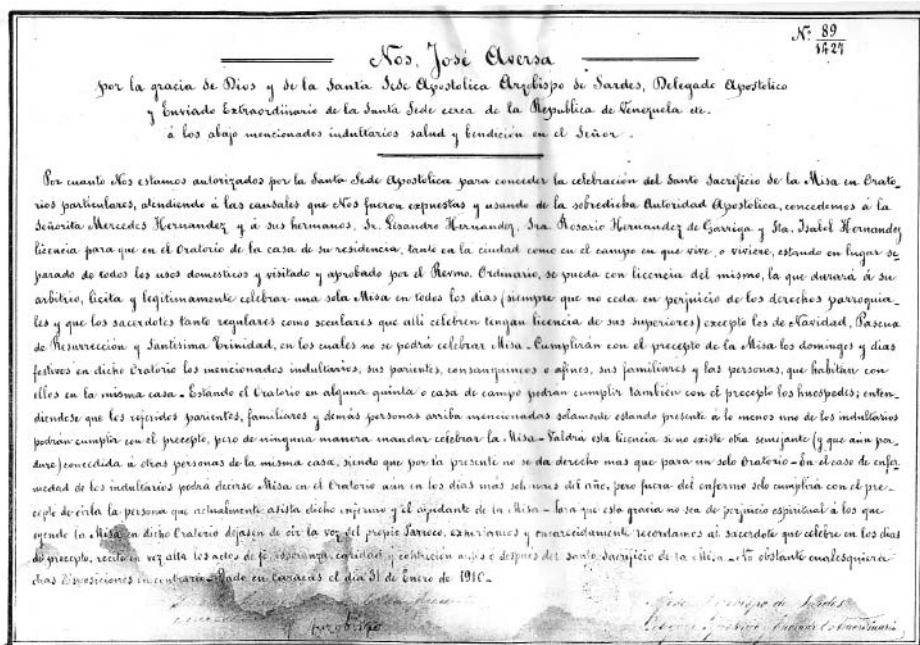 Nº 89
1427
Nos, José Aversa
por la gracia de Dios y de la Santa Sede Apostolica Arzobispo de Sardes, Delegado Apostolico
y Enviado Extraordinario de la Santa Sede cerca de la Republica de Venezuela etc.
á los abajo mencionados indultarios salud y bendición en el Señor.
Por cuanto Nos estamos autorizados por la Santa Sede Apostolica para conceder la celebración del Santo Sacrificio de la Misa en Orato-
rios particulares, atendiendo á las causales que Nos fueron expuestas y usando de la sobredicha Autoridad Apostolica, concedemos á la
Señorita Mercedes Hernandez y á sus hermanos, Sr. Lisandro Hernandez, Sra. Rosario Hernandez de Garriga y Sta. Isabel Hernandez
licencia para que en el Oratorio de la casa de su residencia, tanto en la ciudad como en el campo en que vive, o viviere, estando en lugar se-
parado de todos los usos domesticos y visitado y aprobado por el Revmo. Ordinario, se pueda con licencia del mismo, la que durará á su
arbitrio, licita y legitimamente celebrar una sola Misa en todos los dias (siempre que no ceda en perjuicio de los derechos parroquia-
les y que los sacerdotes tanto regulares como seculares que alli celebren tengan licencia de sus superiores) excepto los de Navidad, Pascua
de Resurrección y Santisima Trinidad, en los cuales no se podrá celebrar Misa - Cumplirán con el precepto de la Misa los domingos y dias
festivos en dicho Oratorio los mencionados indultarios, sus parientes, consanguineos o afines, sus familiares y las personas, que habitan con
ellos en la misma casa - Estando el Oratorio en alguna quinta o casa de campo podrán cumplir también con el precepto los huespedes; enten-
diendose que los referidos parientes, familiares y demás personas arriba mencionadas solamente estando presente á lo menos uno de los indultarios
podrán cumplir con el precepto, pero de ninguna manera mandar celebrar la Misa - Valdrá esta licencia si no existe otra semejante (y que aún per-
dure) concedida á otras personas de la misma casa, siendo que por la presente no se da derecho mas que para un solo Oratorio - En el caso de enfer-
medad de los indultarios podrá decirse Misa en el Oratorio aún en los dias más solemnes del año, pero fuera del enfermo solo cumplirá con el pre-
cepto de oirla la persona que actualmente asista dicho enfermo y el ajudante de la Misa - Para que esta gracia no sea de perjuicio espiritual á los que
oyendo la Misa en dicho Oratorio dejasen de oir la voz del propio Parroco, exhortamos y encarecidamente recordamos al sacerdote que celebre en los dias
de precepto, recite en voz alta los actos de fé, esperanza, caridad y contrición antes o despues del santo sacrificio de la Misa - No obstante cualesquiera
disposiciones en contrario - Dado en Caracas el dia 31 de Enero de 1910 -
José Arzobispo de Sardes
Delegado Apostolico y Enviado Extraordinario